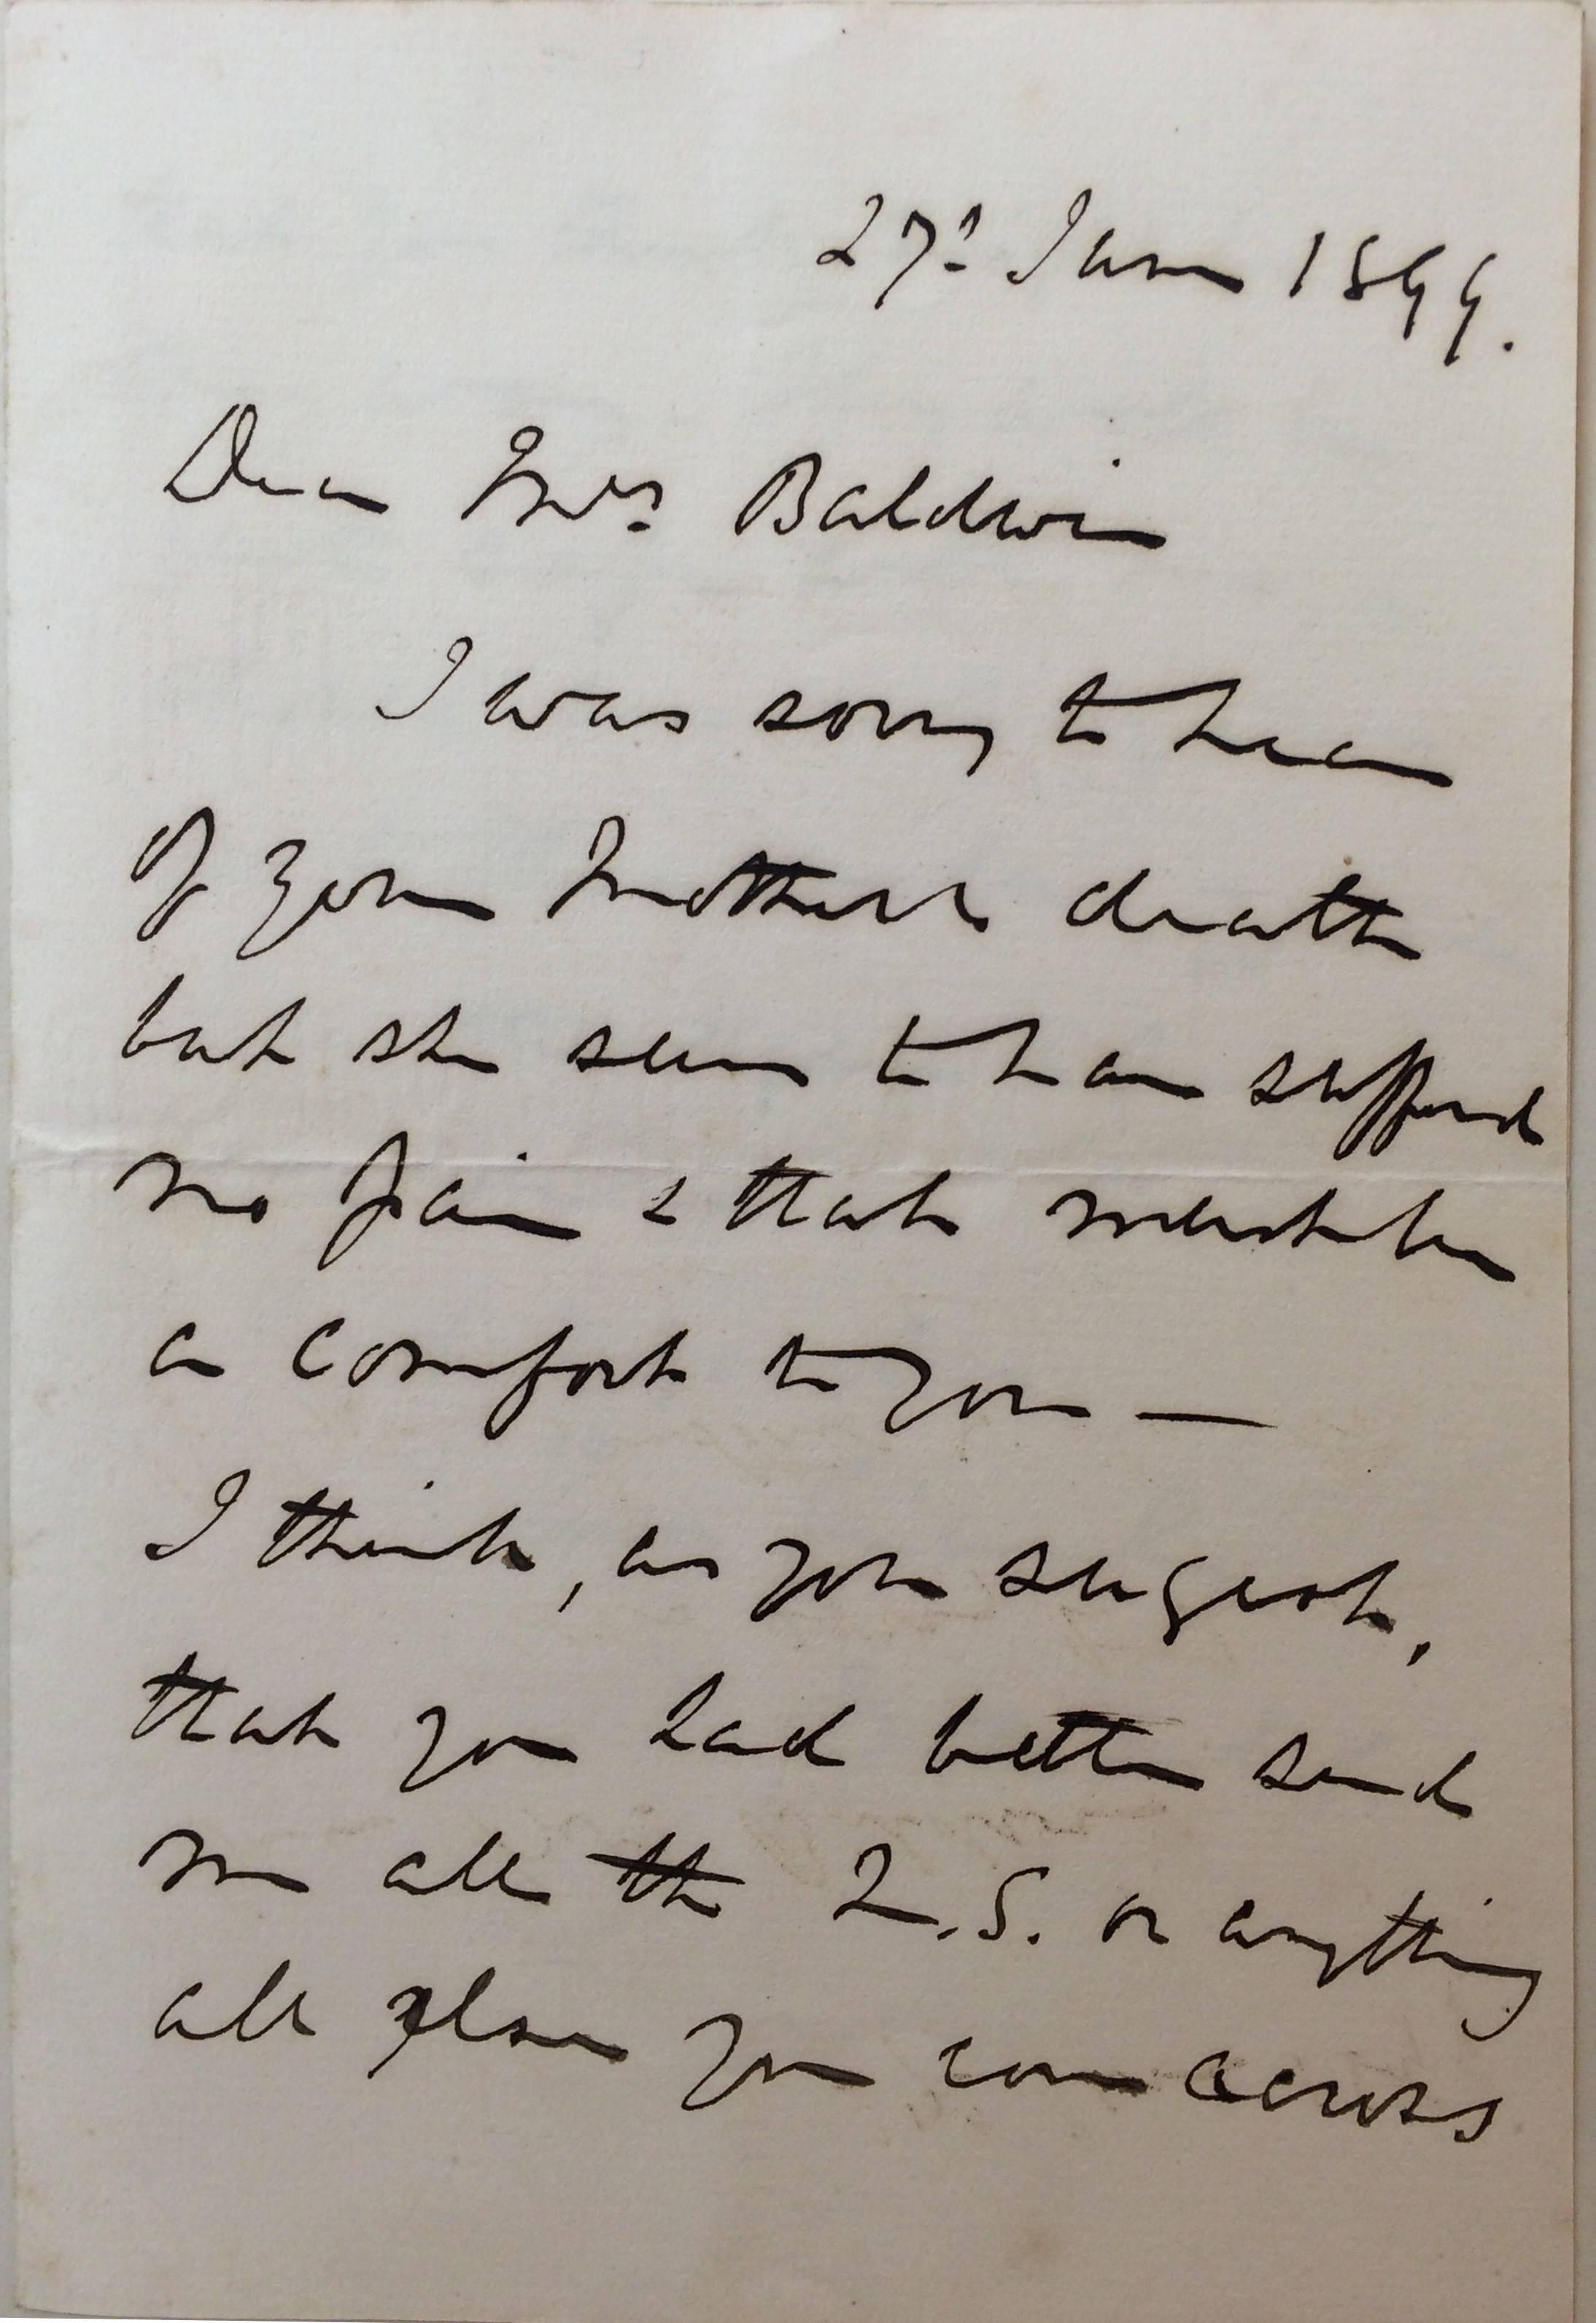 27th June 1899.
Dear Mrs Baldwin
I was sorry to hear
of your mother's death
but she seems to have suffered
no pain & that must be
a comfort to you —
I think, as you suggest,
that you had better send
me all the L.S. or anything
all else you come across